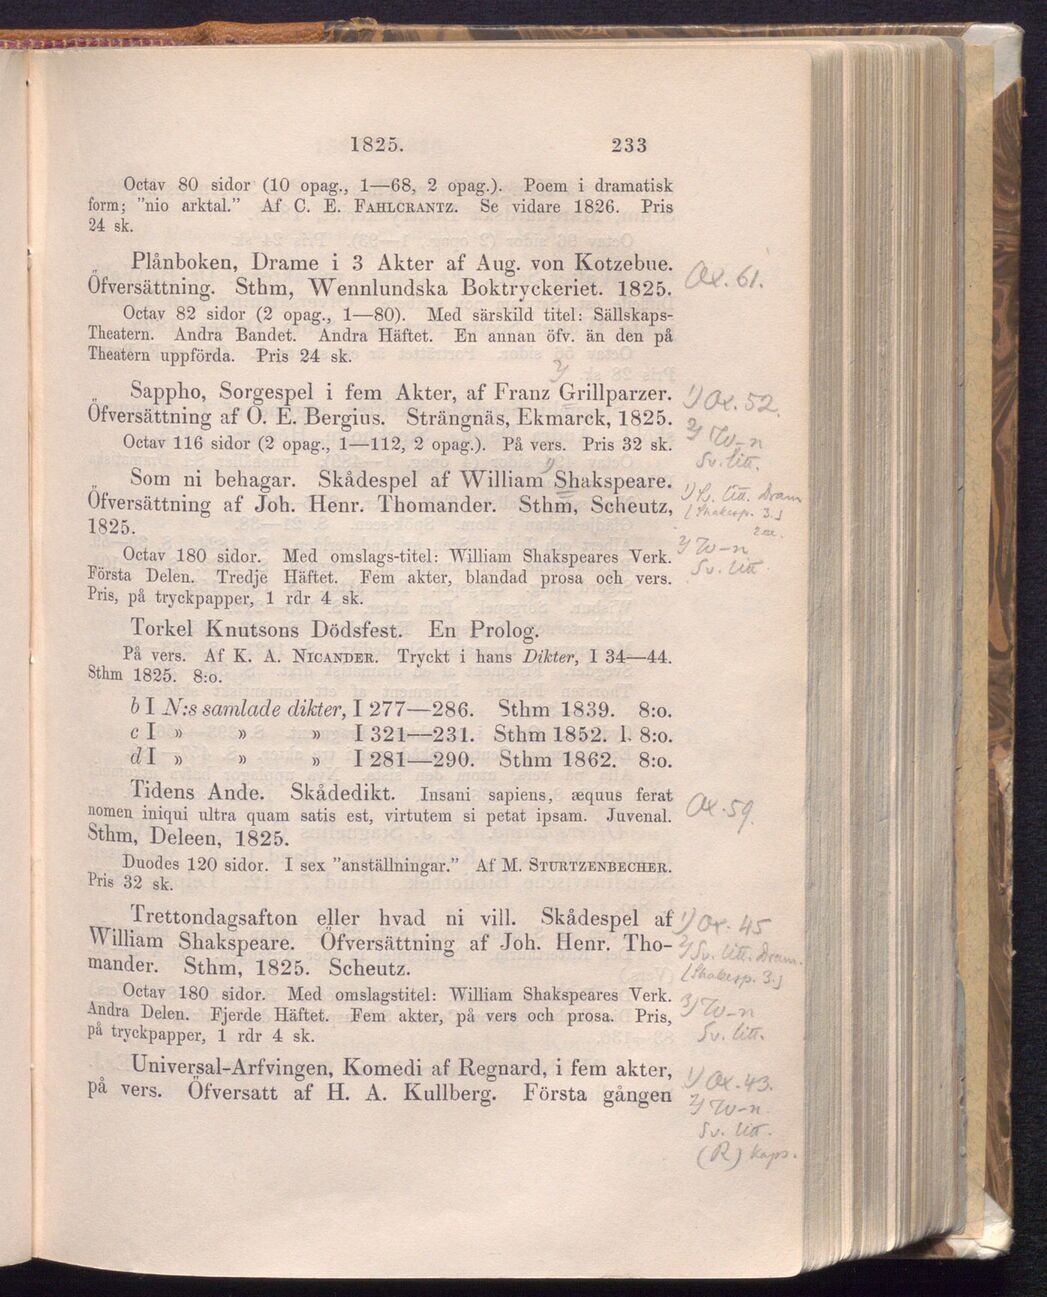 1825. 233
Octav 80 sidor (10 opag., 1—68, 2 opag.). Poem i dramatisk
form; "nio arktal." Af C. E. FAHLCRANTZ. Se vidare 1826. Pris
24 sk.
Plånboken, Drame i 3 Akter af Aug. von Kotzebue.
Öfversättning. Sthm, Wennlundska Boktryckeriet. 1825.
Ox. 61.
Octav 82 sidor (2 opag., 1—80). Med särskild titel: Sällskaps-
Theatern. Andra Bandet. Andra Häftet. En annan öfv. än den på
Theatern uppförda. Pris 24 sk.
Sappho, Sorgespel i fem Akter, af Franz Grillparzer.
1) Ox. 52.
Öfversättning af O. E. Bergius. Strängnäs, Ekmarck, 1825.
2) W-n
Octav 116 sidor (2 opag., 1—112, 2 opag.). På vers. Pris 32 sk.
Sv. litt.
Som ni behagar. Skådespel af William Shakspeare.
Öfversättning af Joh. Henr. Thomander. Sthm, Scheutz,
1) litt. Dram
(Shakesp. 3.)
1825.
Octav 180 sidor. Med omslags-titel: William Shakspeares Verk.
2) W-n
Första Delen. Tredje Häftet. Fem akter, blandad prosa och vers.
Sv. litt
Pris, på tryckpapper, 1 rdr 4 sk.
Torkel Knutsons Dödsfest. En Prolog.
På vers. Af K. A. NICANDER. Tryckt i hans Dikter, I 34—44.
Sthm 1825. 8:o.
b I N:s samlade dikter, I 277—286. Sthm 1839. 8:o.
c I » » » I 321—231. Sthm 1852. l. 8:o.
d I » » » I 281—290. Sthm 1862. 8:o.
Tidens Ande. Skådedikt. Insani sapiens, æquus ferat
nomen iniqui ultra quam satis est, virtutem si petat ipsam. Juvenal.
Ox. 59.
Sthm, Deleen, 1825.
Duodes 120 sidor. I sex "anställningar." Af M. STURTZENBECHER.
Pris 32 sk.
Trettondagsafton eller hvad ni vill. Skådespel af
1) Ox. 45
William Shakspeare. Öfversättning af Joh. Henr. Tho-
2) Sv. litt. Dram.
mander. Sthm, 1825. Scheutz.
(Shakesp. 3.)
Octav 180 sidor. Med omslagstitel: William Shakspeares Verk.
Andra Delen. Fjerde Häftet. Fem akter, på vers och prosa. Pris,
3) W-n
på tryckpapper, 1 rdr 4 sk.
Sv. litt.
Universal-Arfvingen, Komedi af Regnard, i fem akter,
1) Ox. 43.
på vers. Öfversatt af H. A. Kullberg. Första gången
2) W-n.
Sv. litt.
(R) kaps.